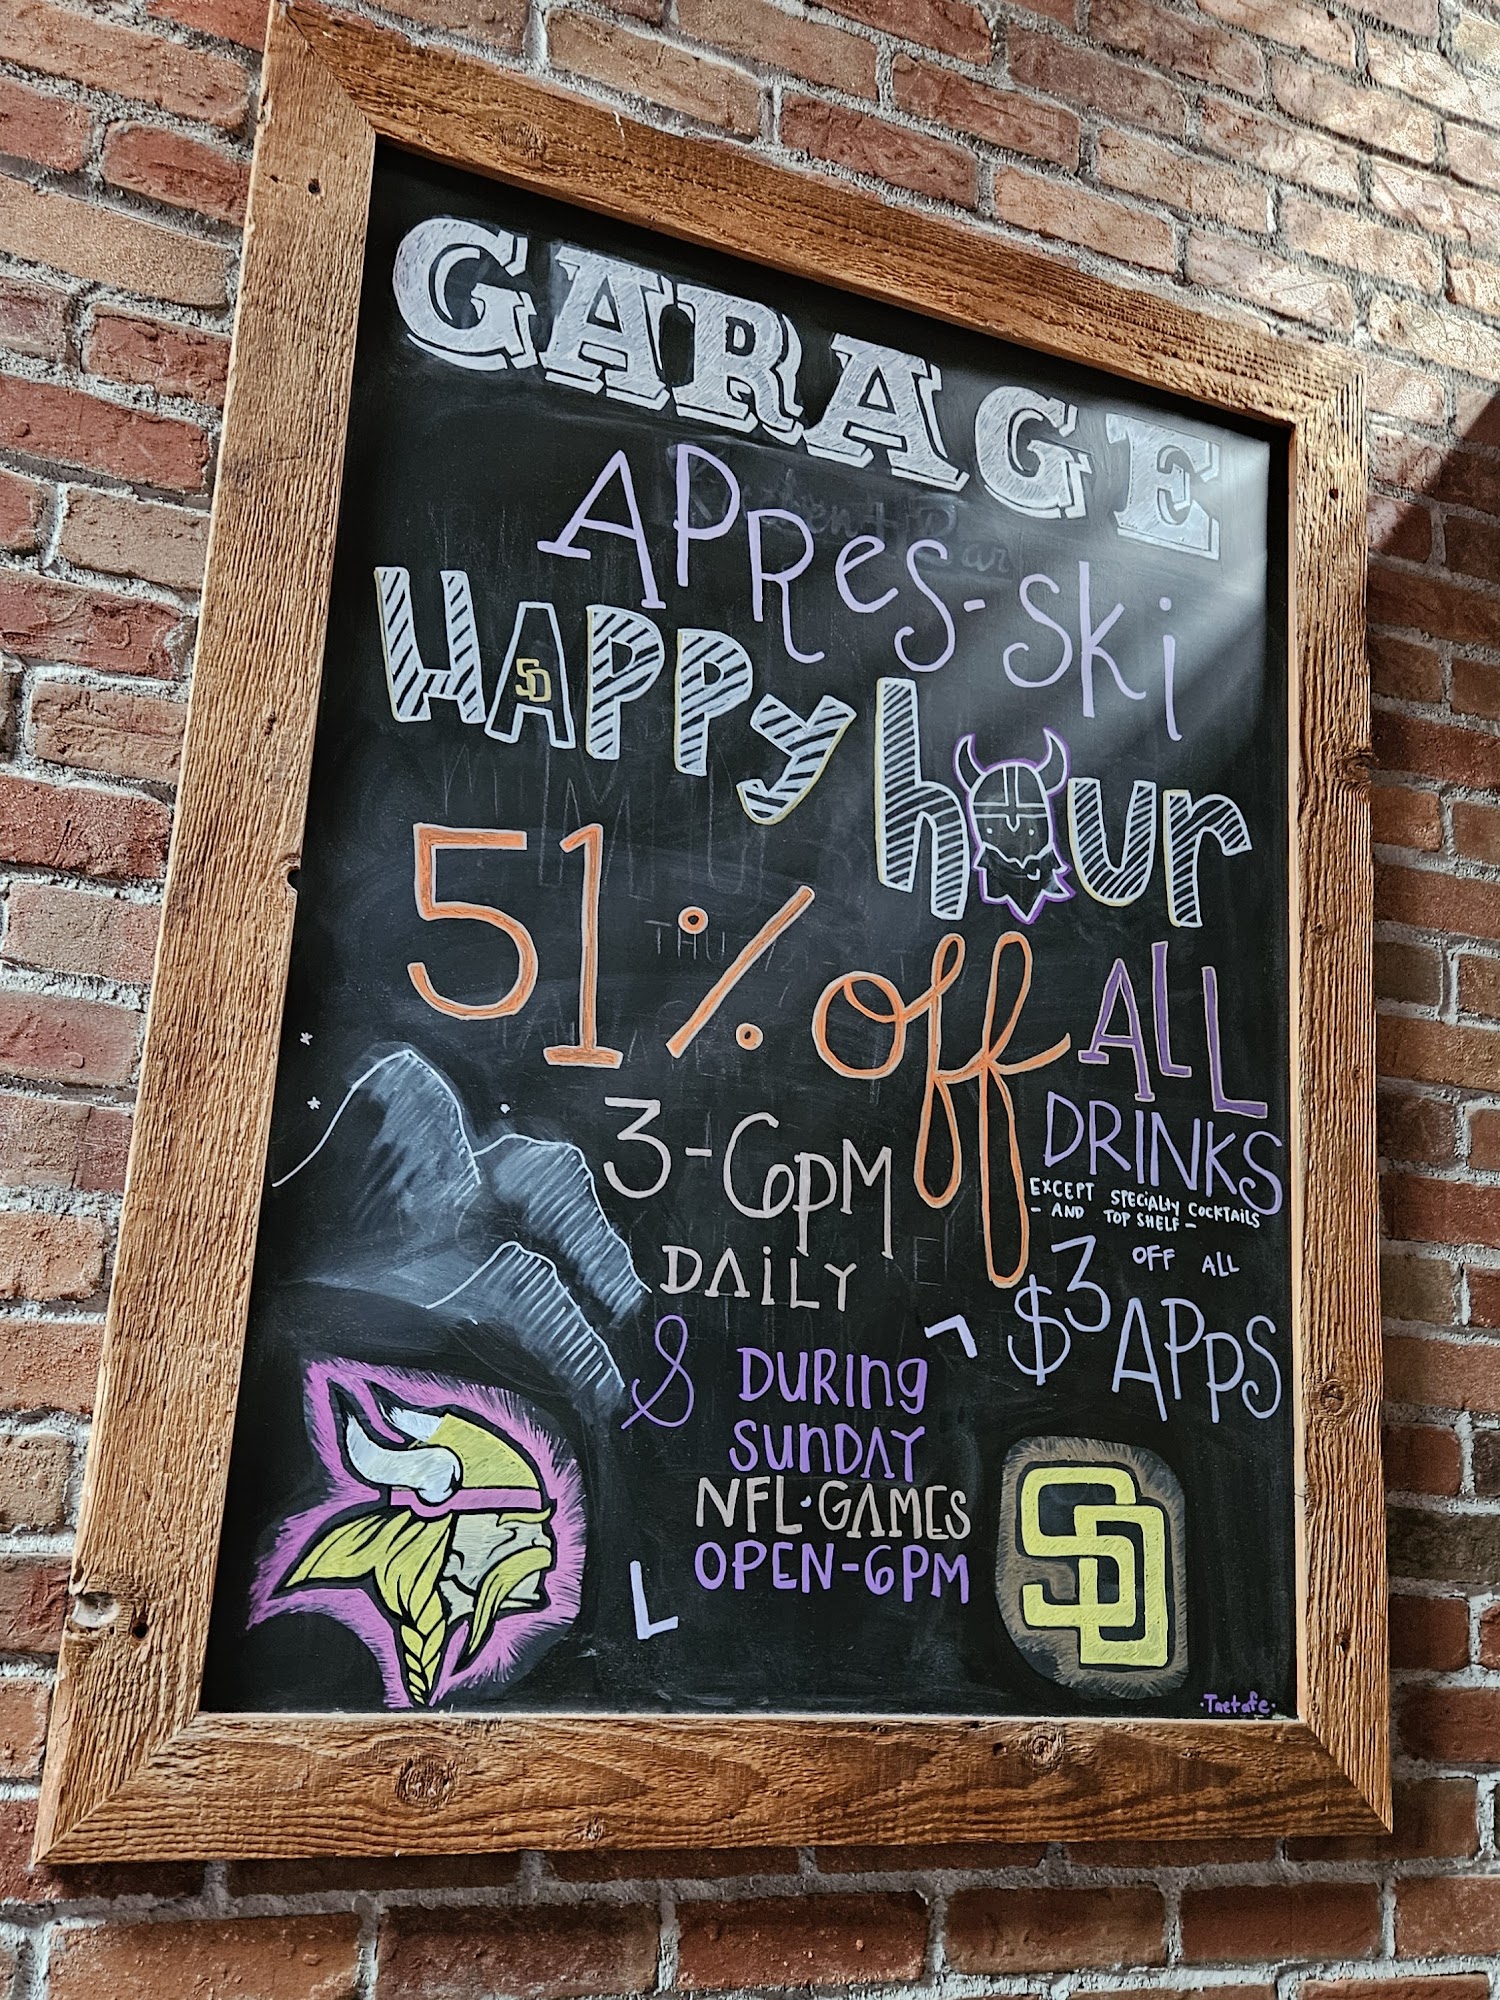 GARAGE
APRES-SKI
HAPPY hour
SD
51% off ALL
DRINKS
EXCEPT SPECIALTY COCKTAILS
- AND TOP SHELF -
3-6PM
DAILY
$3 OFF ALL
APPS
& DURING
SUNDAY
NFL·GAMES
OPEN-6PM
SD